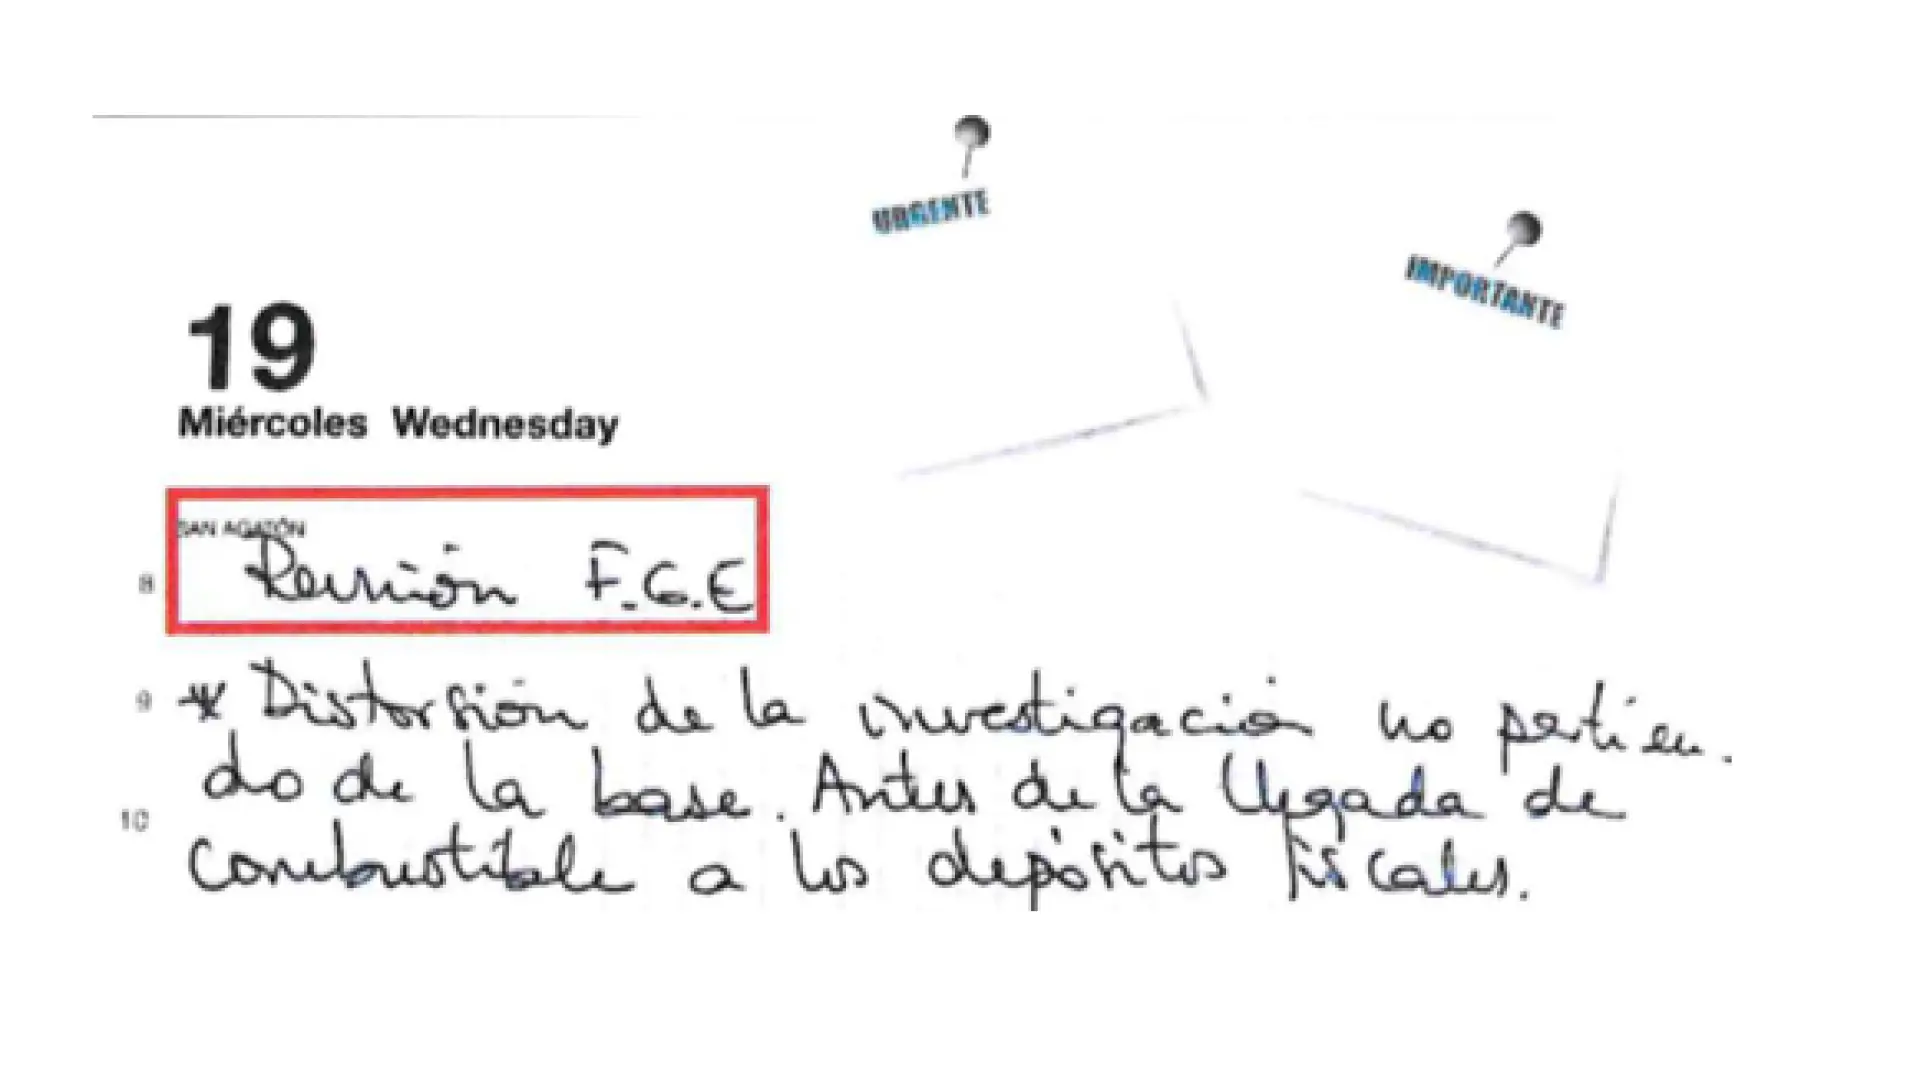 URGENTE
IMPORTANTE
19
Miércoles Wednesday
SAN AGATÓN
8 Reunión F.G.E
9 * Distorsión de la investigación no partien.
do de la base. Antes de la llegada de
10
combustible a los depósitos fiscales.